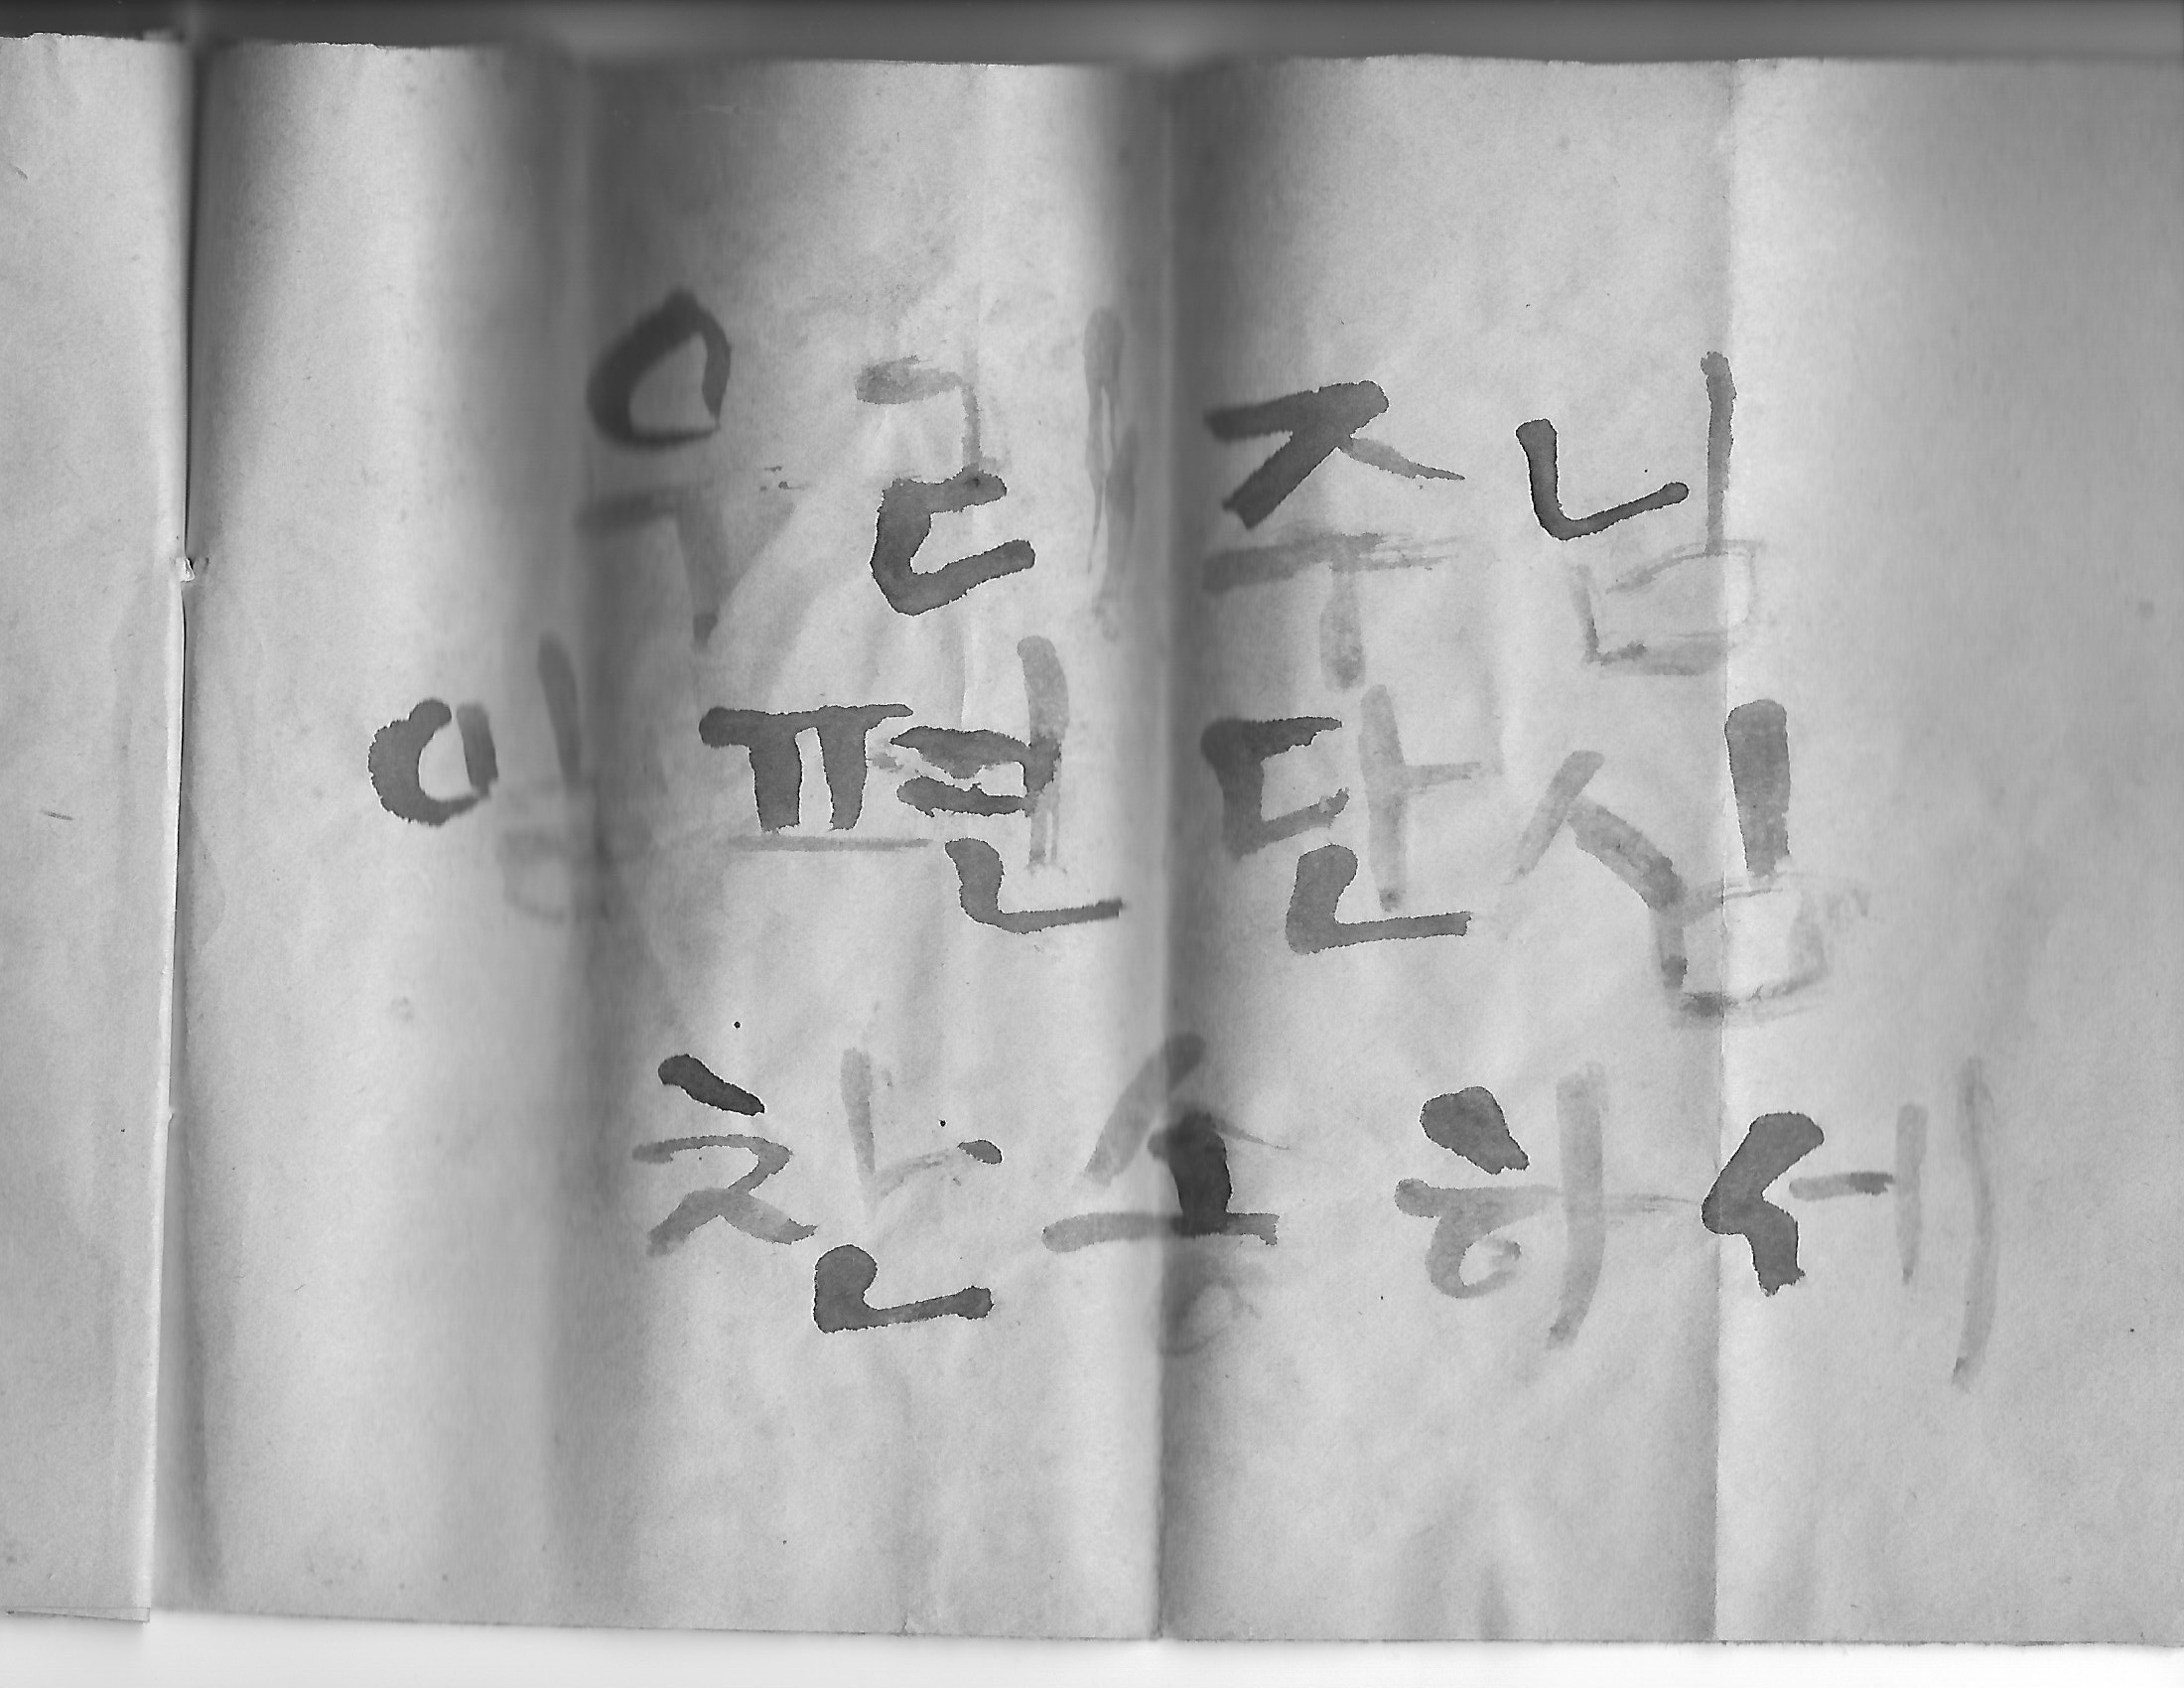 우리 주님
일편단심
찬송하세